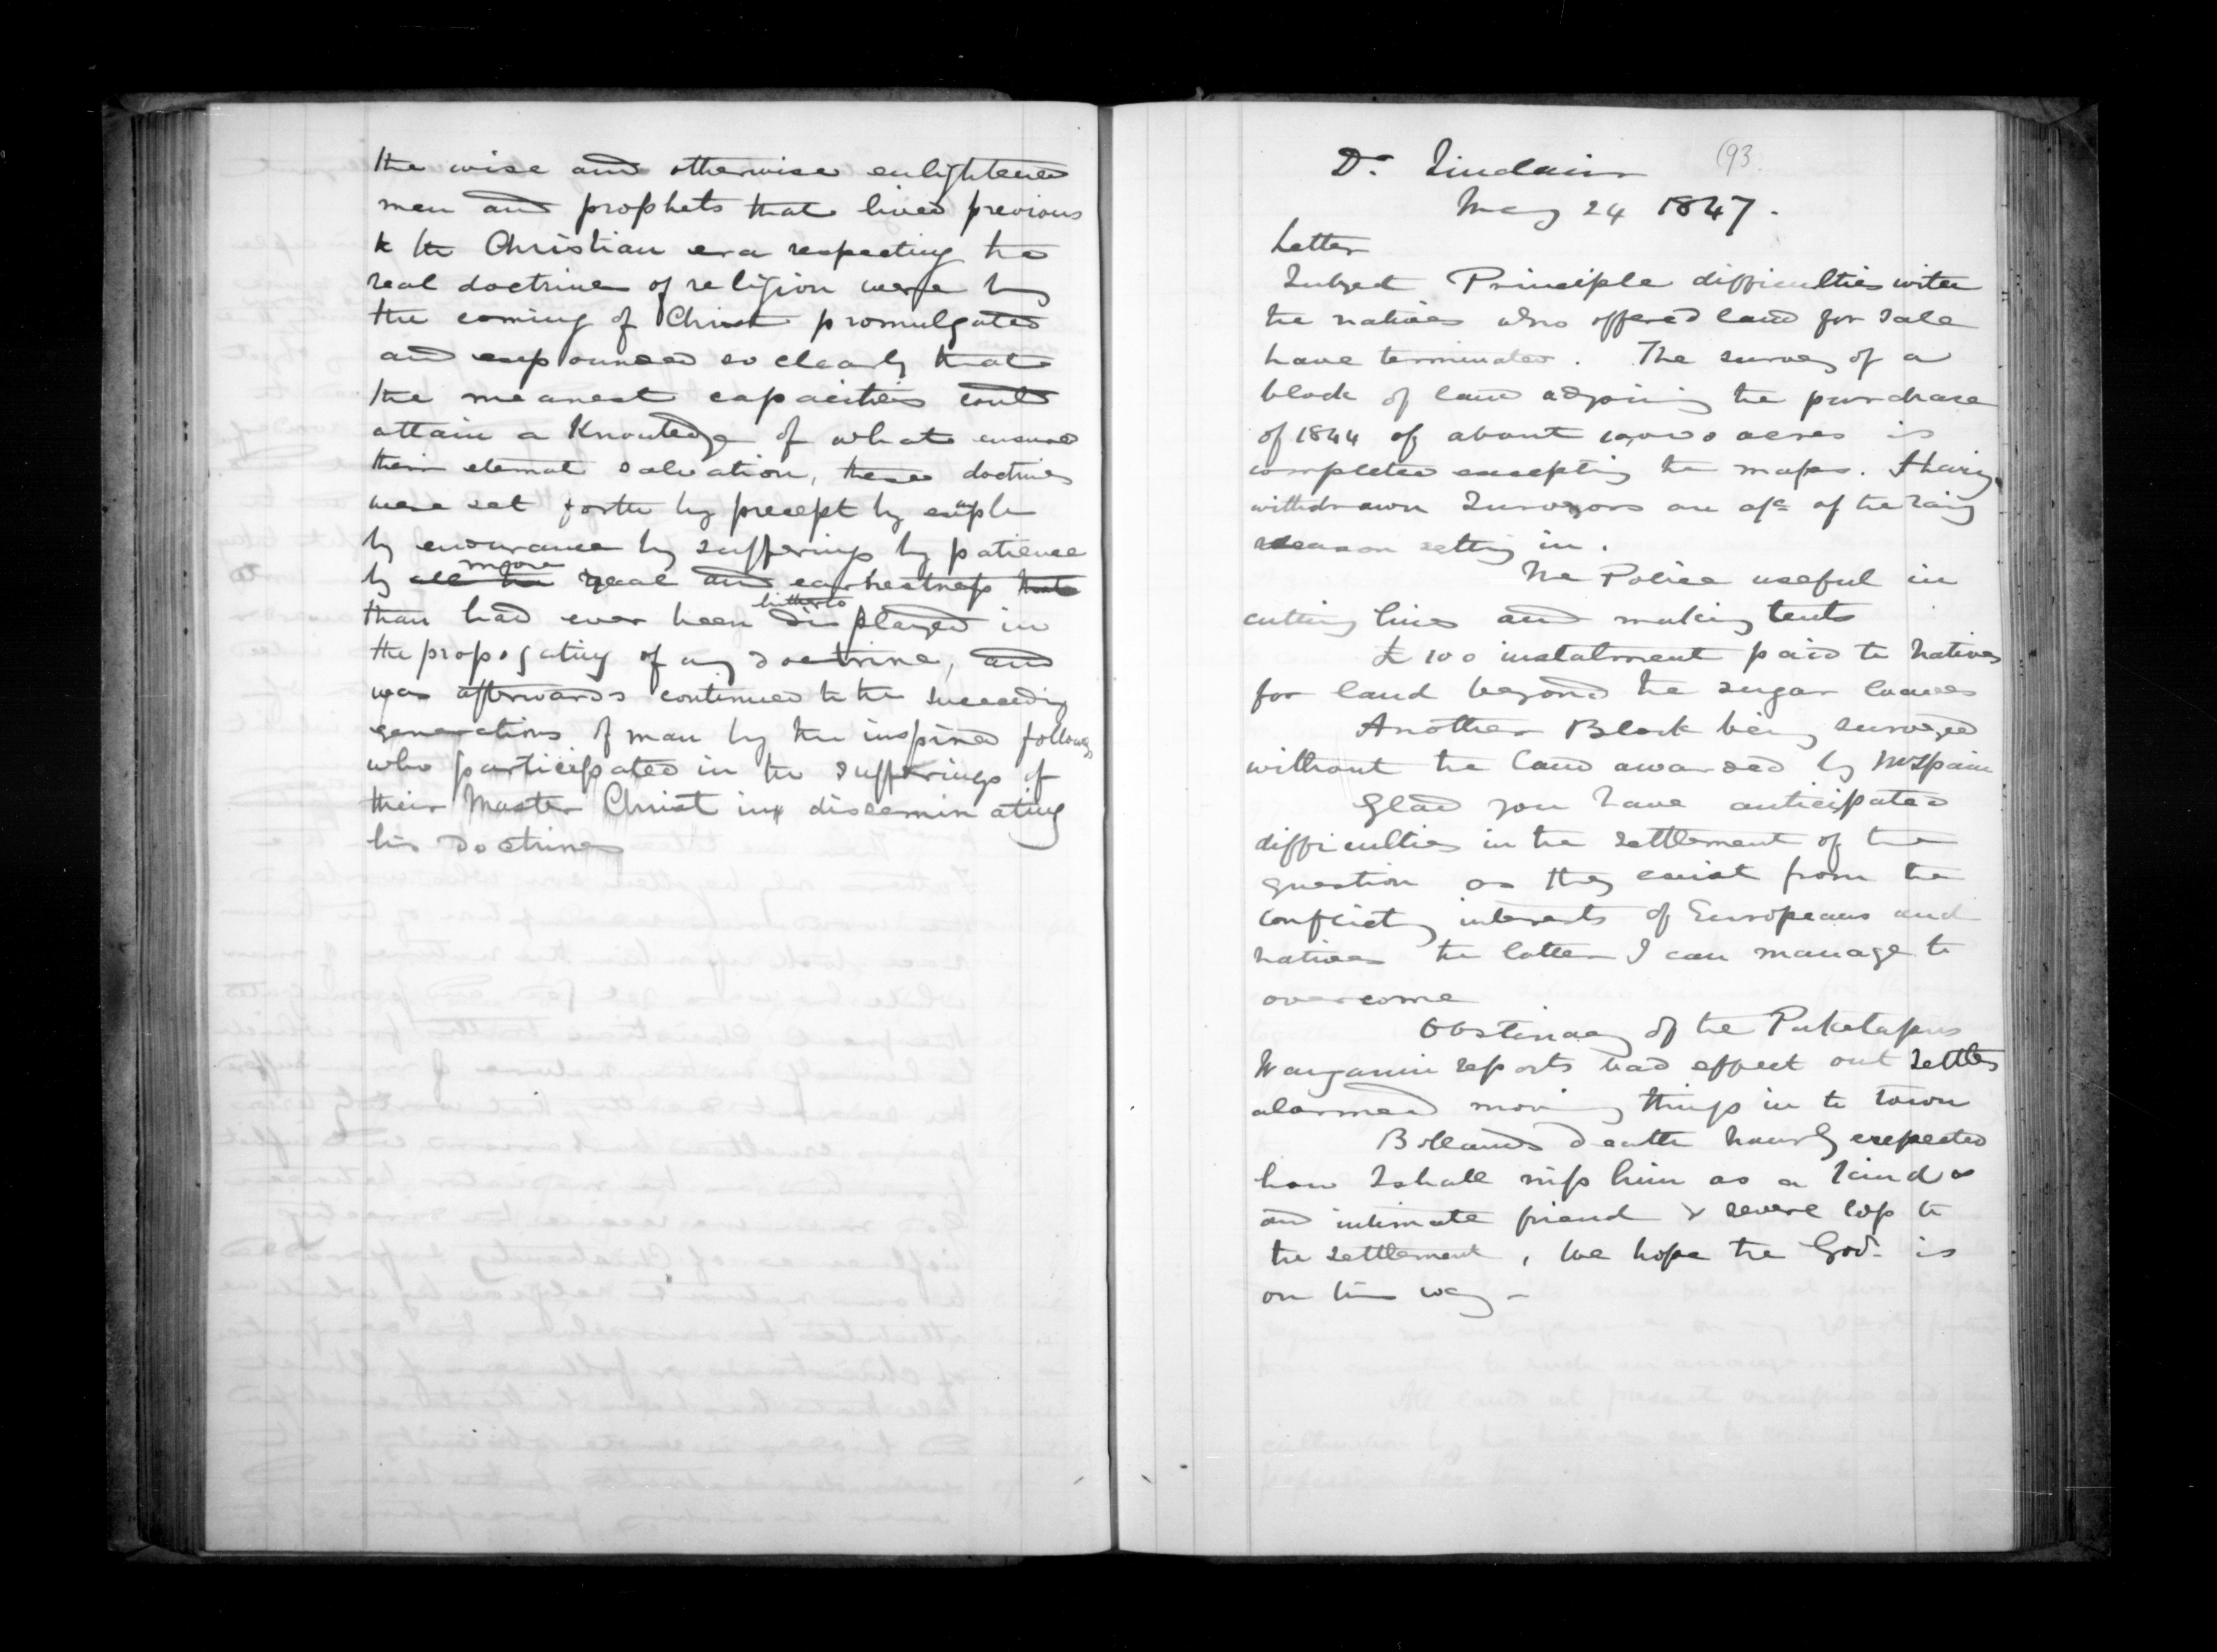 the wise and otherwise enlightened
men and prophets that lived previous
to the Christian era respecting the
real doctrine of religion were by
the coming of Christ promulgated
and expounded so clearly that
the meanest capacities could
attain a Knowledge of what ensured
their eternal salvation, these doctrines
were set forth by precept by exaple
by endurance by sufferings by patience
by all the more zeal and earnestness that
than had ever been hitherto displayed in
the propogating of any doctrine, and
was afterwards continued to the succeeding
generations of man by the inspired followers
who participated in the sufferings of
their Master Christ in diseminating
his Doctrines
(93.
Dr. Sinclair
May 24 1847.
Letter
Subject Principle difficulties with
the natives who offered land for sale
have terminated. The survey of a
block of land adjoining the purchase
of 1844 of about 10,000 acres is
completed excepting the maps. I having
withdrawn Surveyors on a/c of the rainy
season setting in.
The Police useful in
cutting lines and making tents
£100 instalment paid to Natives
for land beyond the sugar loaves
Another Block being surveyed
without the land awarded by Mr Spain
Glad you have anticipated
difficulties in the settlement of the
question as they exist from the
conflicting interests of Europeans and
natives the latter I can manage to
overcome
Obstinacy of the Puketapus
Wanganui reports bad effect out settlers
alarmed moving things in to town
Bollands death hourly expected
how I shall miss him as a kind &
and intimate friend & severe loss to
the settlement, we hope the Govr. is
on his way -